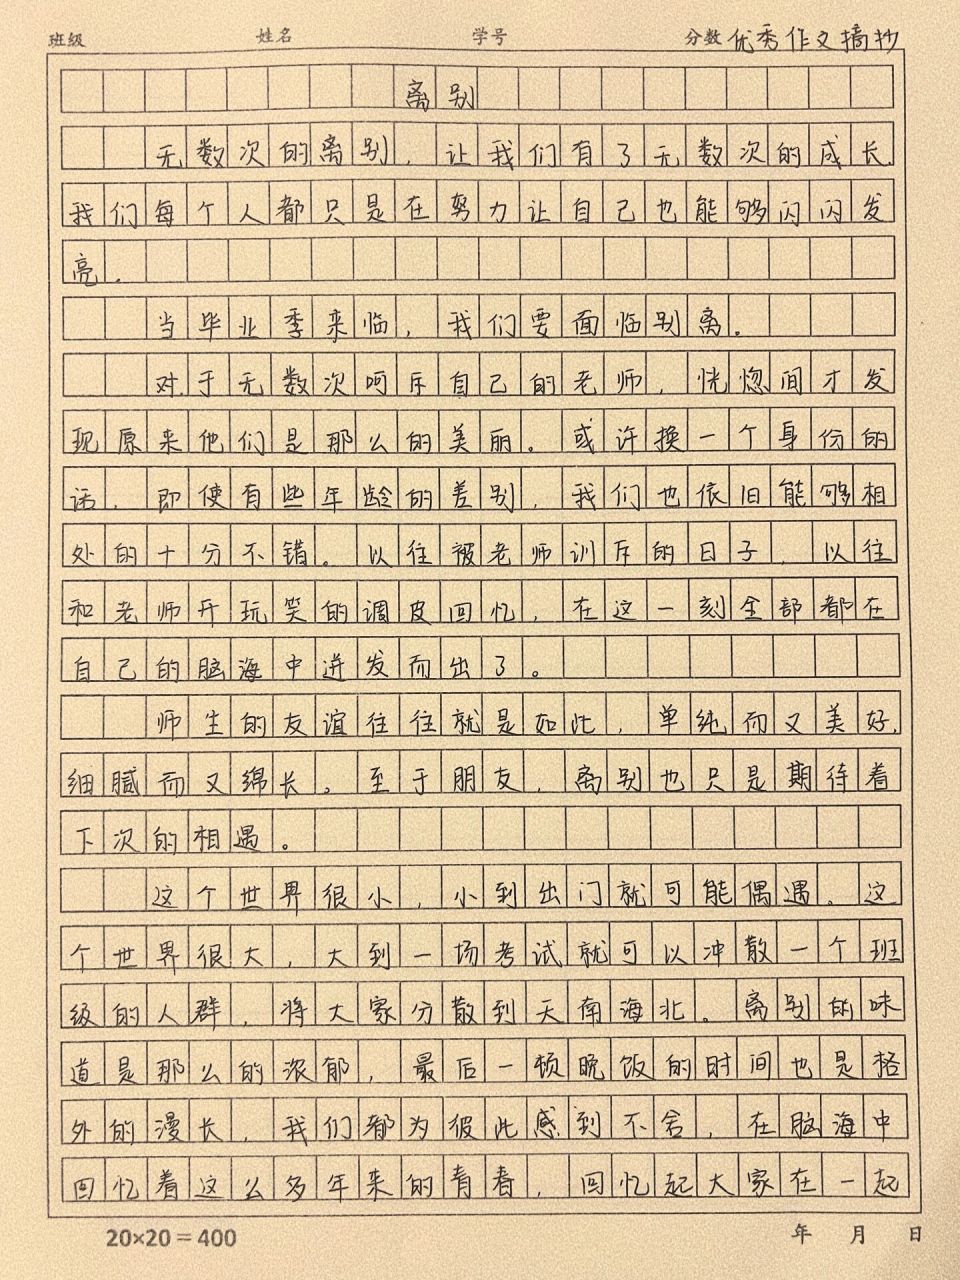 班级 姓名 学号 分数 优秀作文摘抄
离别
无数次的离别，让我们有了无数次的成长.
我们每个人都只是在努力让自己也能够闪闪发
亮.
当毕业季来临，我们要面临别离。
对于无数次呵斥自己的老师，恍惚间才发
现原来他们是那么的美丽。或许换一个身份的
话，即使有些年龄的差别，我们也依旧能够相
处的十分不错。以往被老师训斥的日子，以往
和老师开玩笑的调皮回忆，在这一刻全部都在
自己的脑海中迸发而出了。
师生的友谊往往就是如此，单纯而又美好，
细腻而又绵长。至于朋友，离别也只是期待着
下次的相遇。
这个世界很小，小到出门就可能偶遇。这
个世界很大，大到一场考试就可以冲散一个班
级的人群，将大家分散到天南海北。离别的味
道是那么的浓郁，最后一顿晚饭的时间也是格
外的漫长，我们都为彼此感到不舍，在脑海中
回忆着这么多年来的青春，回忆起大家在一起
20×20＝400 年 月 日